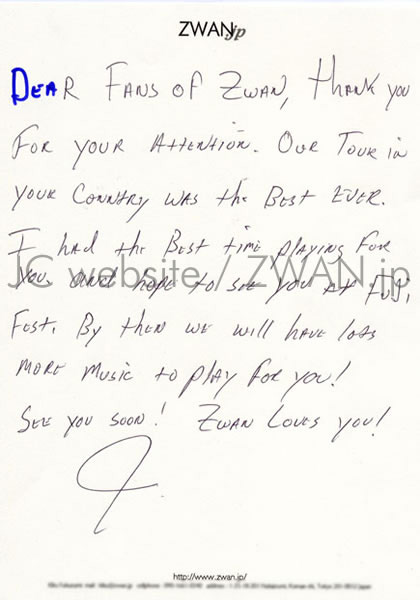 ZWAN.jp
DEAR FANS OF ZWAN, THANK YOU
FOR YOUR ATTENTION. OUR TOUR IN
YOUR CONNTRY WAS the BEST EVER.
I had the BEST time PLAYING FOR
YOU and hope to see you at FUJI
JC website / ZWAN.jp
FEST. By then we will have lots
MORE MUSIC to PLAY FOR YOU!
SEE YOU SOON! ZWAN LOVES YOU!
http://www.zwan.jp/